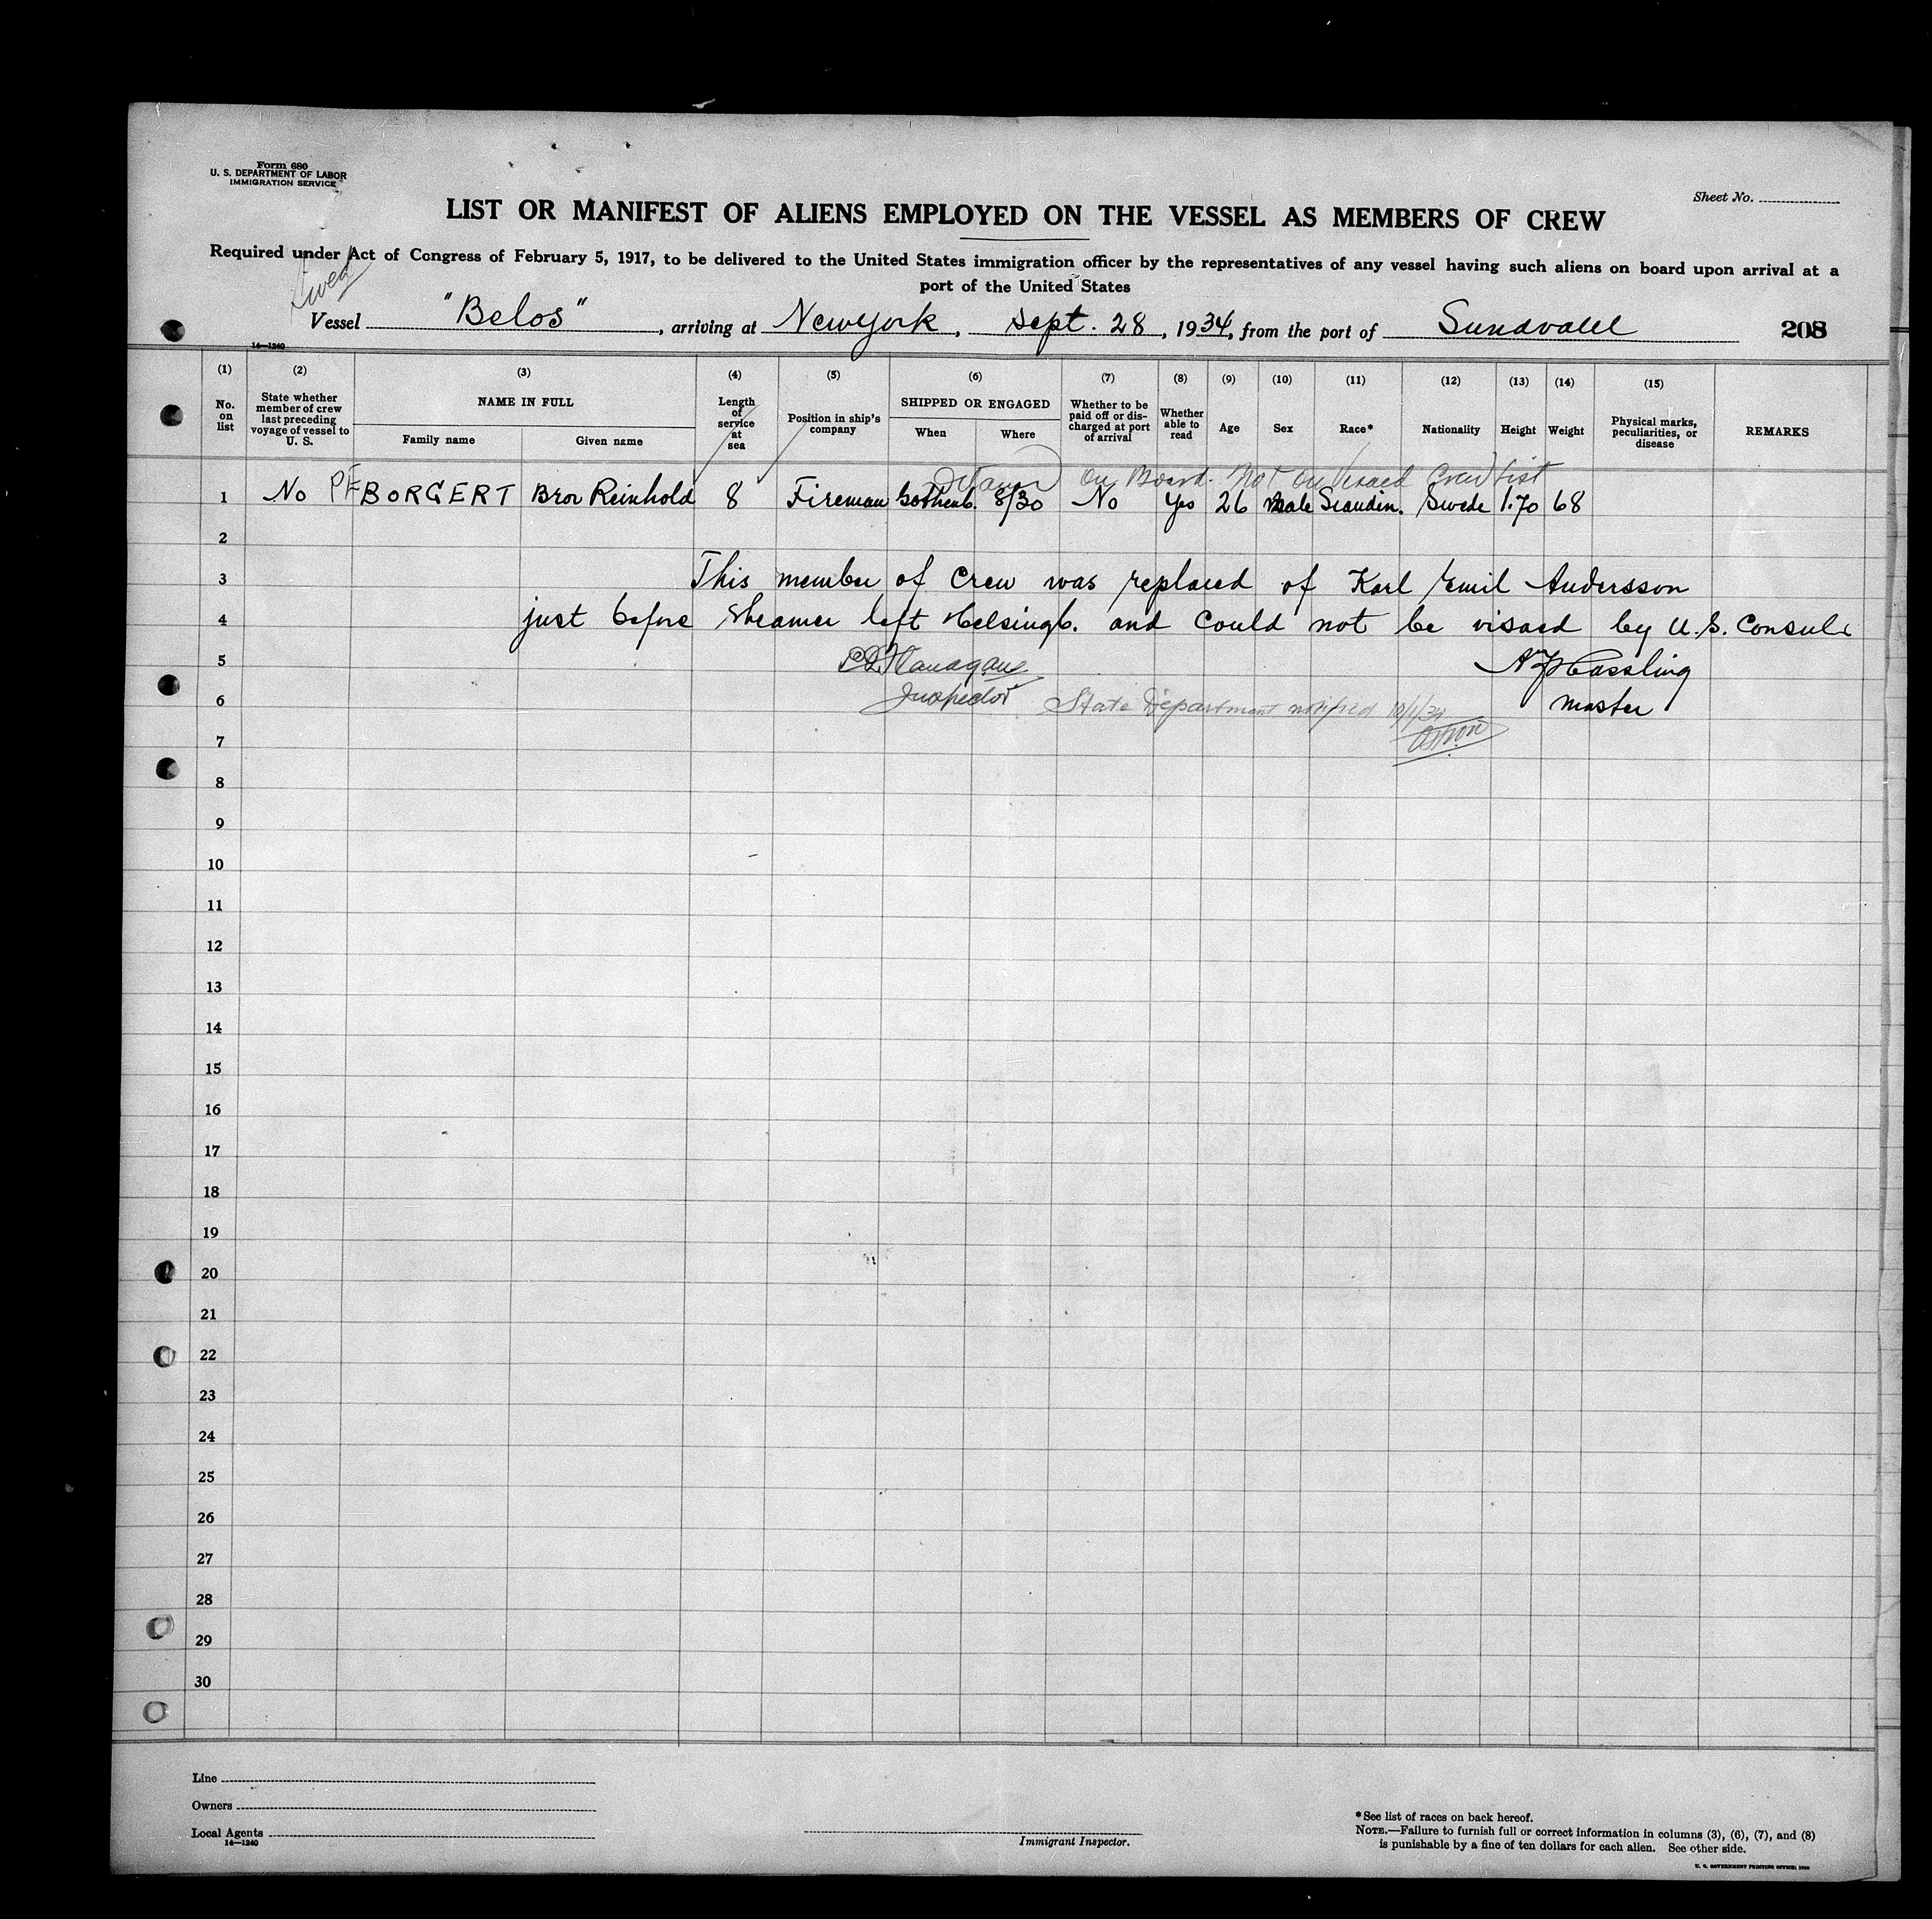 Form 680
U. S. DEPARTMENT OF LABOR
IMMIGRATION SERVICE
Sheet No.
LIST OR MANIFEST OF ALIENS EMPLOYED ON THE VESSEL AS MEMBERS OF CREW
Required under Act of Congress of February 5, 1917, to be delivered to the United States immigration officer by the representatives of any vessel having such aliens on board upon arrival at a
port of the United States
Swed
Vessel "Belos", arriving at New York, Sept. 28, 1934, from the port of Sundvall 208
14—1240
(1) (2) (3) (4) (5) (6) (7) (8) (9) (10) (11) (12) (13) (14) (15)
No. on list
State whether member of crew last preceding voyage of vessel to U. S.
NAME IN FULL
Family name
Given name
Length of service at sea
Position in ship's company
SHIPPED OR ENGAGED
When
Where
Whether to be paid off or discharged at port of arrival
Whether able to read
Age
Sex
Race*
Nationality
Height
Weight
Physical marks, peculiarities, or disease
REMARKS
On Board. Not on Visaed Crew List
1 No PF BORGERT Bror Reinhold 8 Fireman Gothenb. 8/30 No Yes 26 Male Scandin. Swede 1.70 68
2
3 This member of Crew was replaced of Karl Emil Andersson
4 just before Steamer left Helsingb. and could not be visaed by U.S. Consul
5 Flanagan
Inspector
N. Cassling
6 State Department notified 10/1/34
master
7
8
9
10
11
12
13
14
15
16
17
18
19
20
21
22
23
24
25
26
27
28
29
30
Line
Owners
Local Agents
14—1240
Immigrant Inspector.
*See list of races on back hereof.
NOTE.—Failure to furnish full or correct information in columns (3), (6), (7), and (8)
is punishable by a fine of ten dollars for each alien. See other side.
U. S. GOVERNMENT PRINTING OFFICE: 1930